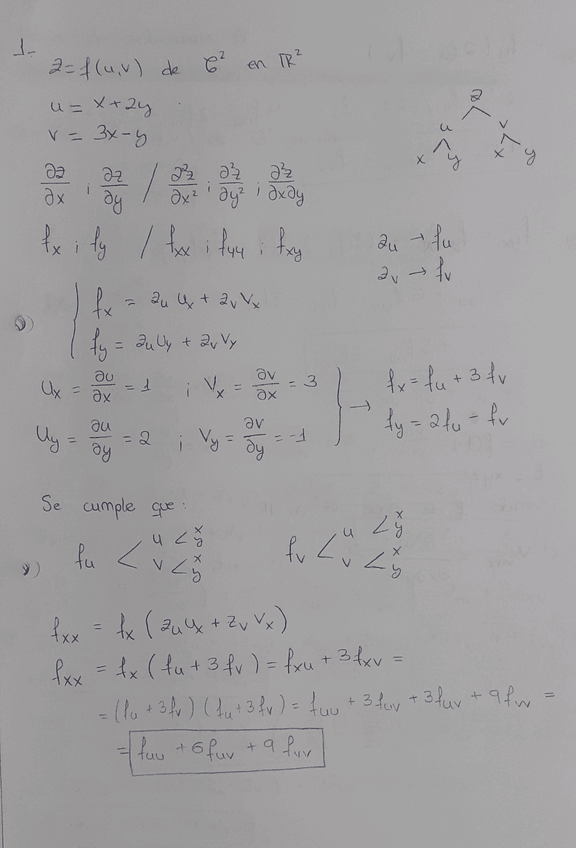 1-
z = f(u,v) de C² en ℝ²
u = x + 2y
v = 3x - y
z
u v
x y x y
∂z/∂x ; ∂z/∂y / ∂²z/∂x² ; ∂²z/∂y² ; ∂²z/∂x∂y
fx ; fy / fxx ; fyy ; fxy
zu → fu
zv → fv
fx = zu ux + zv vx
fy = zu uy + zv vy
ux = ∂u/∂x = 1 ; vx = ∂v/∂x = 3
uy = ∂u/∂y = 2 ; vy = ∂v/∂y = -1
→ fx = fu + 3 fv
fy = 2fu - fv
Se cumple que:
fu < u < x y
v < x y
fv < u < x y
v < x y
fxx = fx (zu ux + zv vx)
fxx = fx (fu + 3 fv) = fxu + 3 fxv =
= (fu + 3fv) (fu + 3fv) = fuu + 3 fuv + 3 fuv + 9 fvv =
= fuu + 6 fuv + 9 fvv